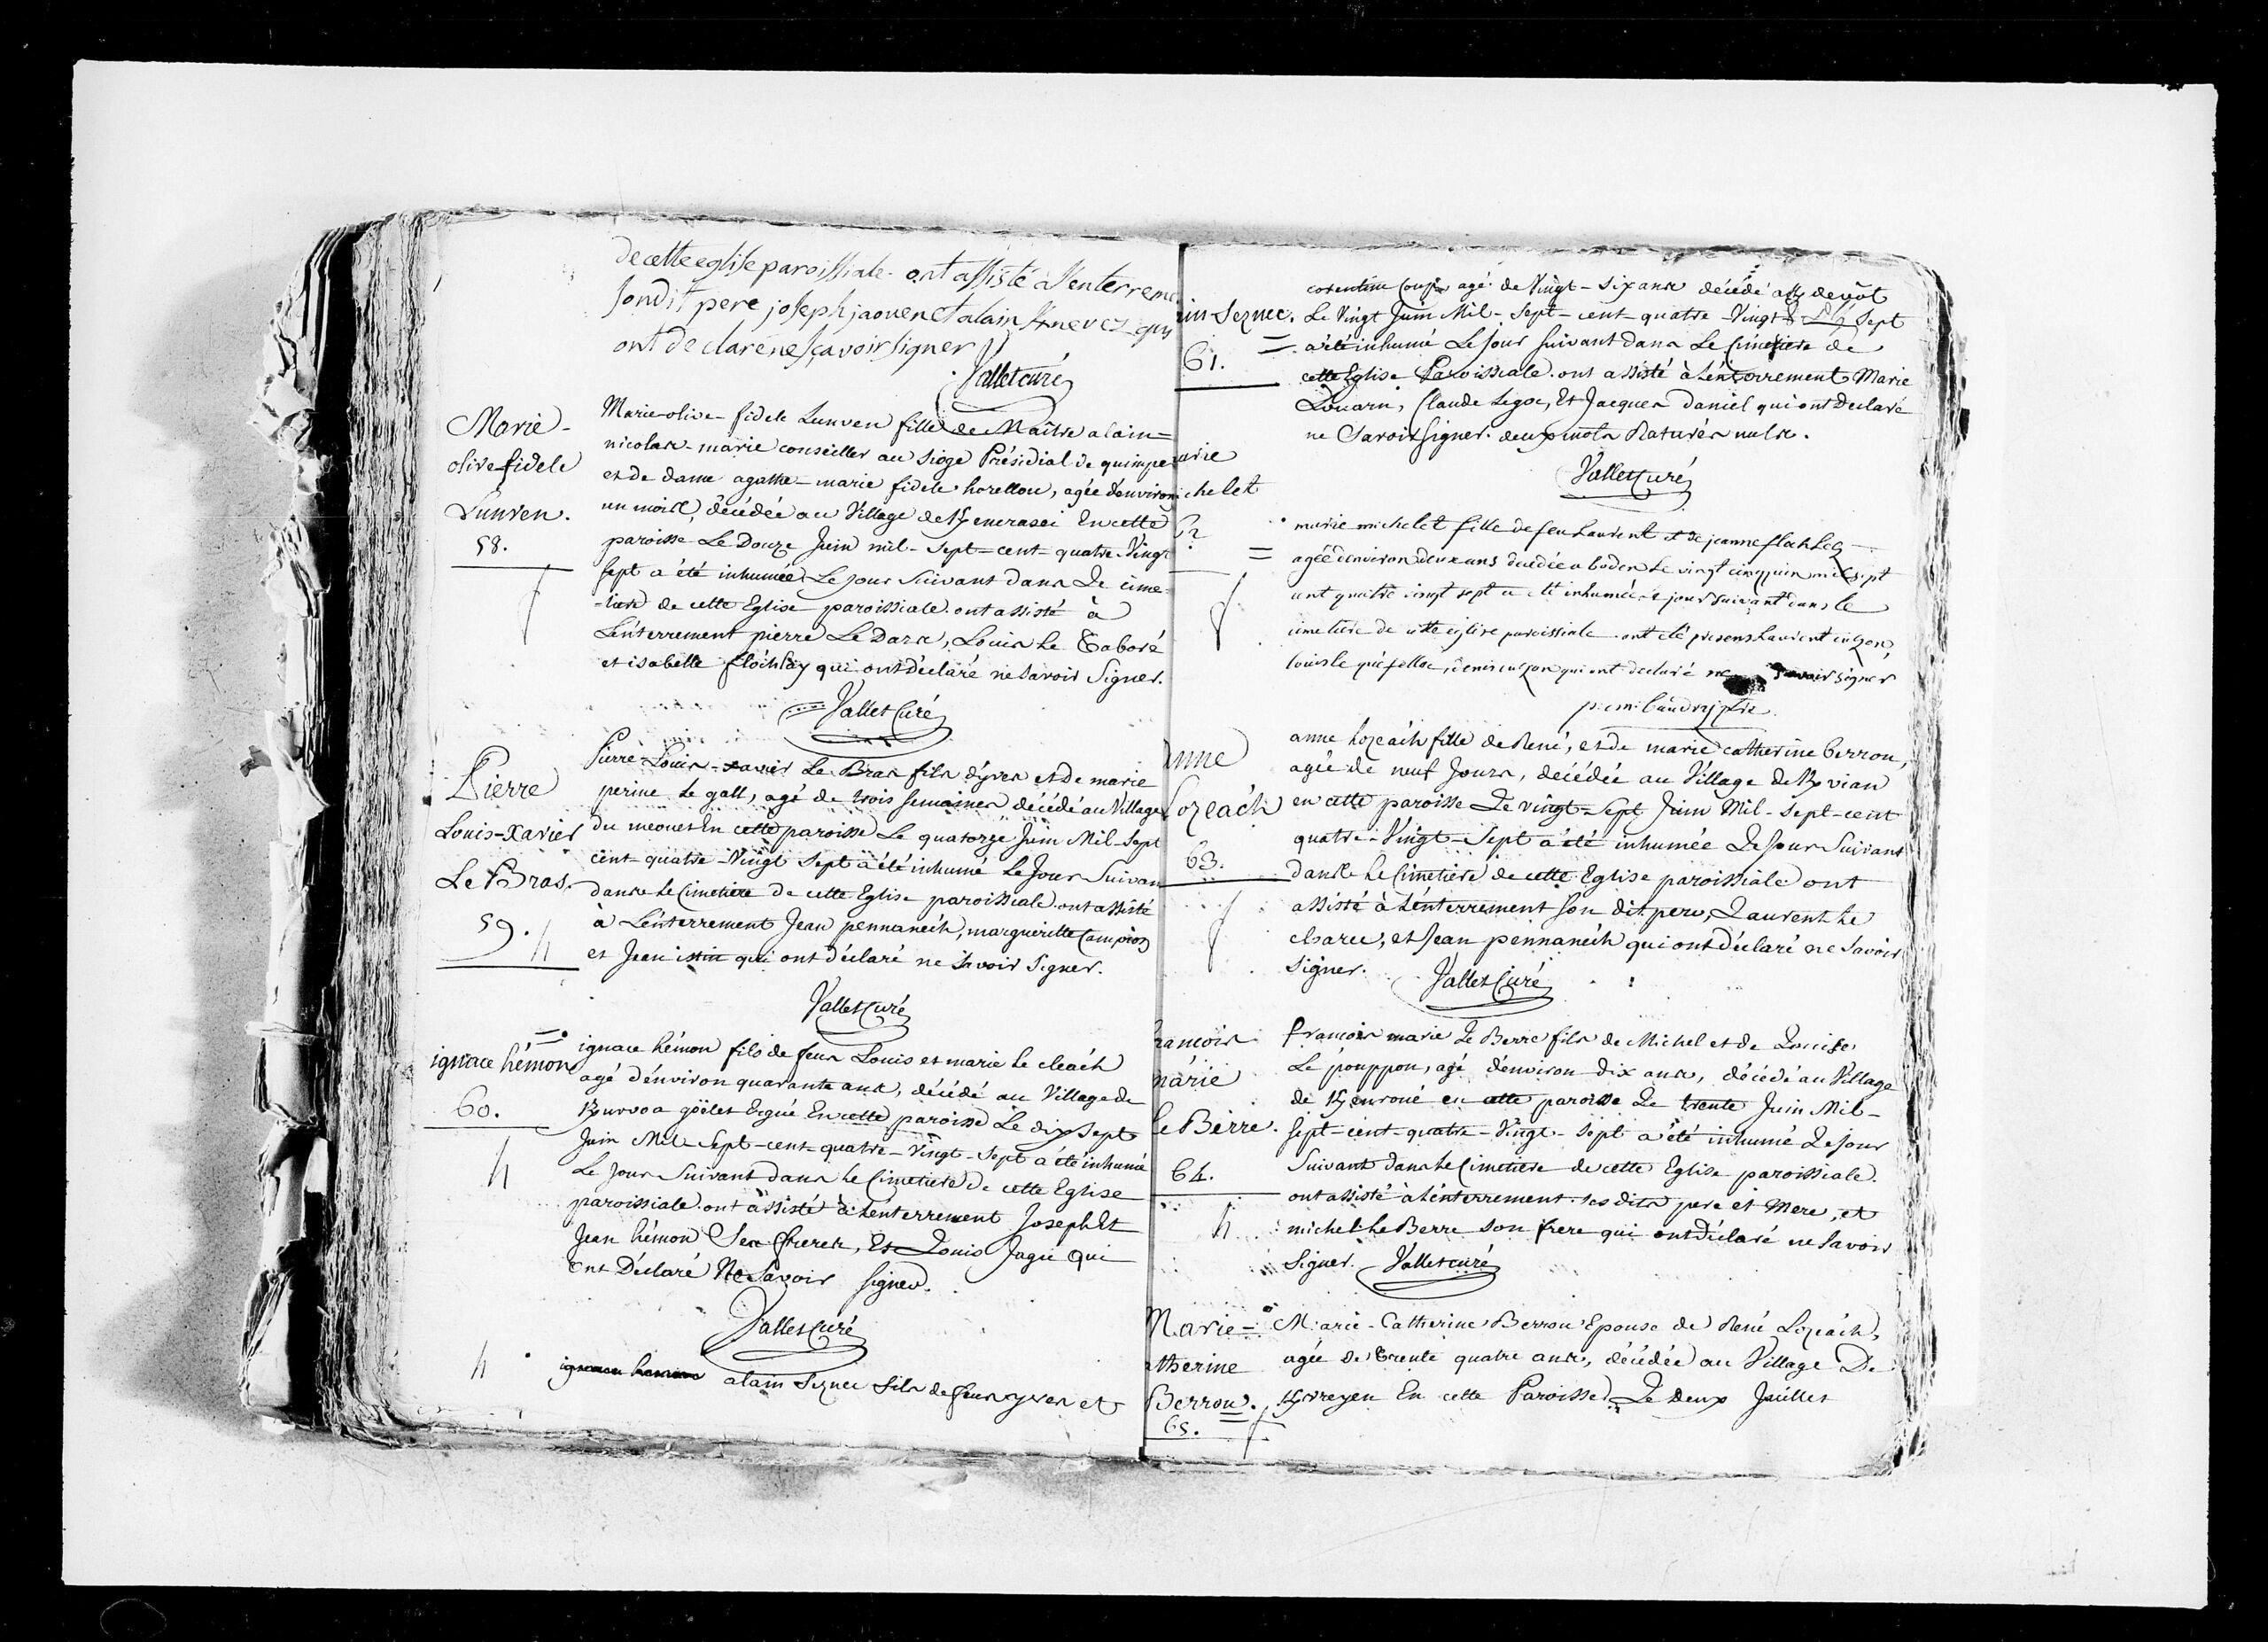 de cette eglise paroissiale. ont assisté a l'enterreme
son dit pere joseph jaouen et alain qui
ont declaré ne sçavoir signer
Vallet curé
Marie-
olive fidele
Lunven.
58.
Marie-olive-fidele Lunven fille de Maître alain=
nicolas-marie conseiller au siége Présidial de quimper
et de dame agathe-marie fidele horellou, agée d'environ
un mois, décédée au Village de En cette
paroisse Le Douze Juin mil-sept-cent-quatre-Vingt
sept a été inhumée Le jour Suivant dans Le cime-
-tiere de cette Eglise paroissiale. ont assisté à
L'enterrement pierre Le Dars, Louis Le Taboré
et isabelle flôchlay qui ont déclaré ne Savoir Signer.
Vallet Curé
Pierre
Louis-Xavier
Le Bras.
59.
Pierre-Louis-xavier Le Bras fils d'yves et de marie
perine Le gall, agé de trois semaines décédé au Village
du meouet En cette paroisse Le quatorze Juin Mil-Sept
cent-quatre-Vingt Sept a été inhumé Le Jour Suivan
dans Le Cimetiere de cette Eglise paroissiale. ont assisté
à L'enterrement Jean pennanéch, marguerite Campion
et Jean istin qui ont déclaré ne Savoir Signer.
Vallet Curé
ignace hémon
60.
ignace hémon fils de feus Louis et marie Le cleac'h
agé d'environ quarante ans, décédé au Village de
gôëlet Ergué En cette paroisse Le dix Sept
Juin Mil-Sept-cent-quatre-Vingt-Sept a été inhumé
Le Jour Suivant dans Le Cimetiere de cette Eglise
paroissiale. ont assisté à L'enterrement Joseph Et
Jean hémon Ses freres, Et Louis Jagu qui
Ont Déclaré Ne Savoir Signer.
Vallet Curé
ignace hemon alain Seznec fils de feus yves et
in Seznec.
61.
corentine agé de Vingt-Six ans décédé
Le Vingt Juin Mil-Sept-cent-quatre-Vingt Sept
a été inhumé Le Jour Suivant dans Le Cimetiere de
cette Eglise Paroissiale. ont assisté à L'enterrement Marie
Louarn, Claude Legoc, Et Jacques Daniel qui ont Declaré
ne Savoir signer. deux mots Raturés nuls.
Vallet Curé
arie
chelet
62
=
marie michelet fille de feu Laurent et de jeanne flochley
agée d'environ deux ans decedée a boden Le vingt cinq juin mil sept
cent quatre vingt sept a eté inhumée le jour suivant dans le
cimetiere de cette eglise paroissiale. ont eté presens Laurent cuzon,
Louis Le, denis cuzon qui ont declaré ne Savoir signer
Anne
Lozeách
63.
anne Lozeách fille de René, et de marie catherine berrou,
agée de neuf Jours, décédée au Village de vian
en cette paroisse Le vingt-Sept Juin Mil-Sept-cent
quatre-Vingt-Sept a été inhumée Le Jour Suivant
dans Le Cimetiere de cette Eglise paroissiale ont
assisté à L'enterrement Son dit pere, Laurent Le
, et Jean pennanéch qui ont déclaré ne Savoir
Signer. Vallet Curé
rançois
marie
Le Berre.
64.
françois marie Le Berre fils de Michel et de Louise
Le pouppon, agé d'environ dix ans, décédé au Village
de en cette paroisse Le trente Juin Mil-
Sept-cent-quatre-Vingt-Sept a été inhumé Le Jour
Suivant dans Le Cimetiere de cette Eglise paroissiale.
ont assisté à L'enterrement Ses dits pere et Mere, et
michel Le Berre Son frere qui ont déclaré ne Savoir
Signer. Vallet curé
Marie-
atherine
Berrou.
65.
Marie-Catherine Berrou Epouse de René Lozeách,
agée de Trente quatre ans, décédée au Village De
En cette Paroisse Le Deux Juillet